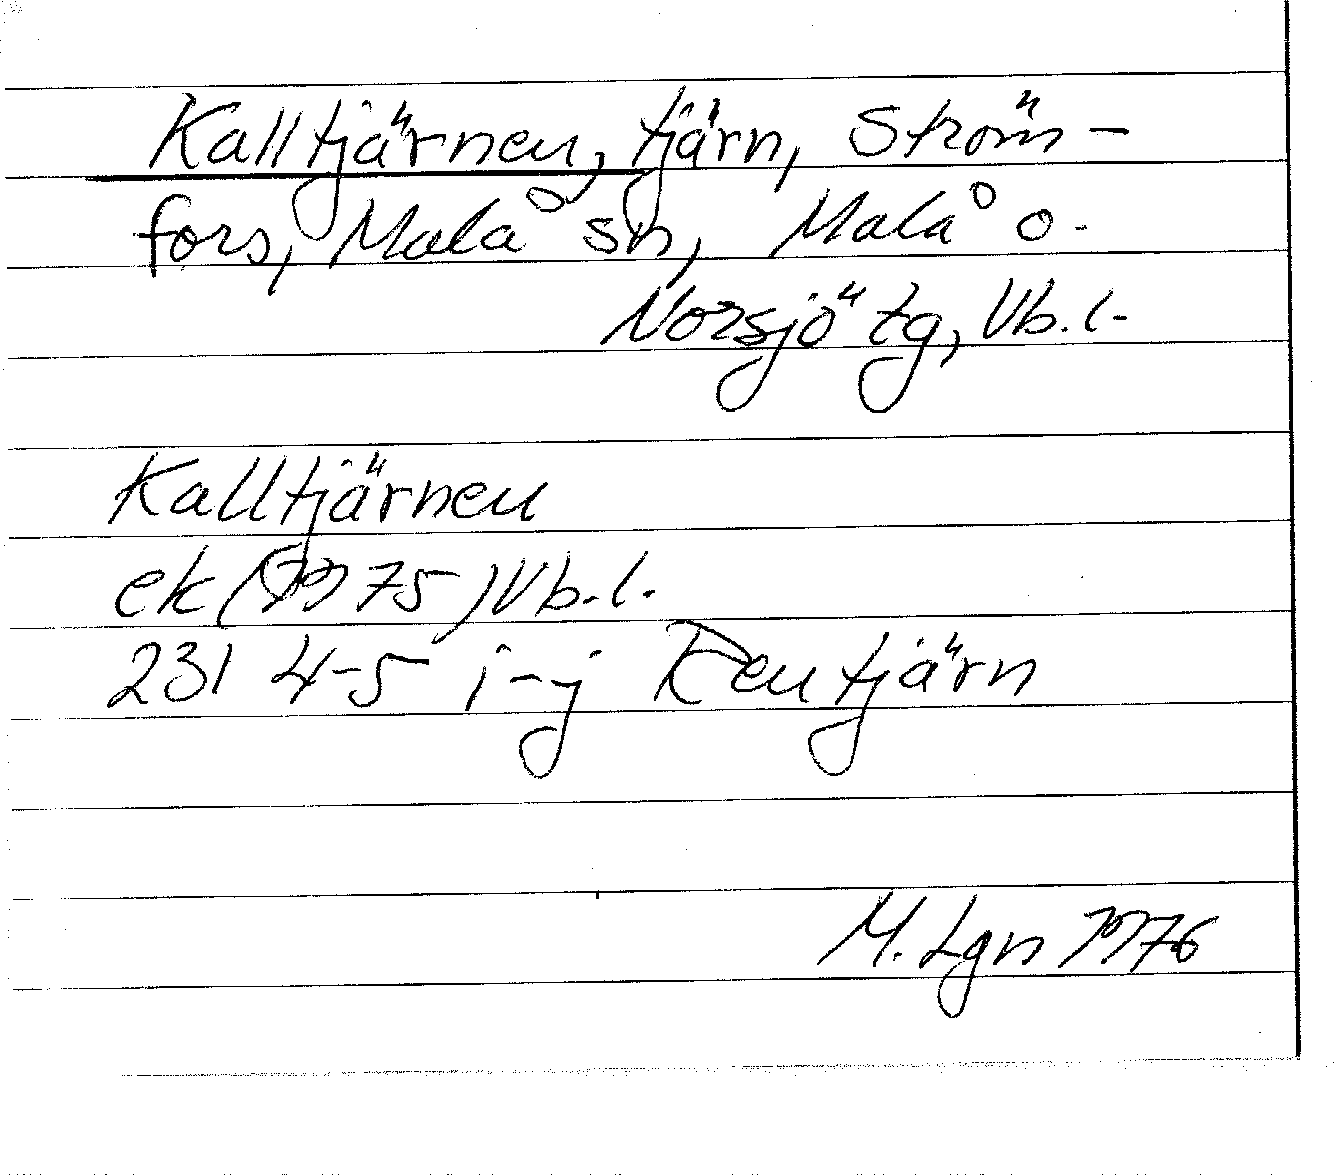 Kalltjärnen, tjärn, Ström-
fors, Malå sn, Malå o.
Norsjö tg, Vb.l.
Kalltjärnen
ek (1975) Vb.l.
231 4-5 i-j Rentjärn
M. Lgn 1976